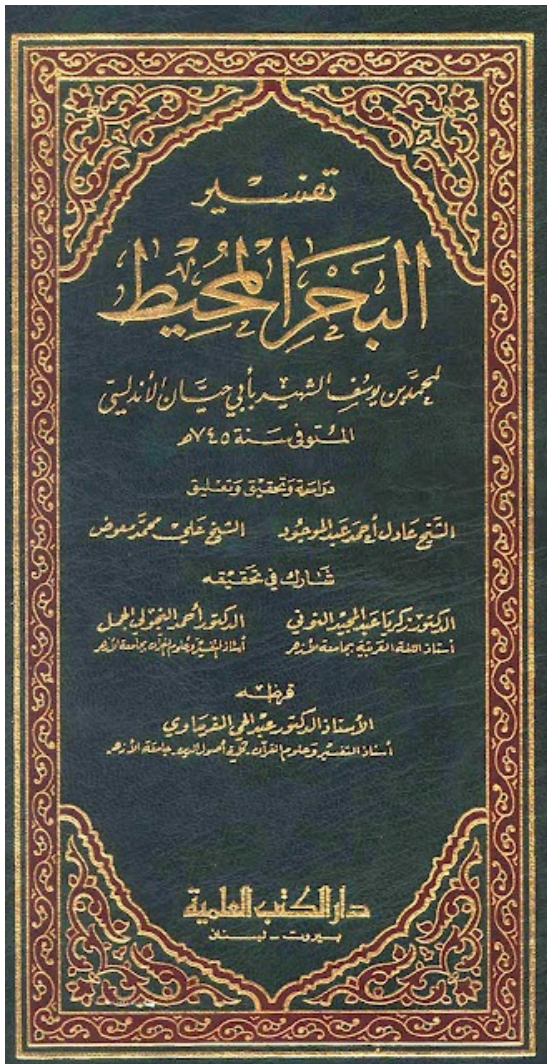 تفسير
البحر المحيط
لمحمد بن يوسف الشهير بأبي حيان الأندلسي
المتوفى سنة ٧٤٥ هـ
دراسة وتحقيق وتعليق
الشيخ عادل أحمد عبد الموجود الشيخ علي محمد معوض
شارك في تحقيقه
الدكتور زكريا عبد المجيد النوقي الدكتور أحمد النجولي الجمل
أستاذ اللغة العربية بجامعة الأزهر أستاذ التفسير وعلوم القرآن بجامعة الأزهر
قرظه
الأستاذ الدكتور عبد الحي الفرماوي
أستاذ التفسير وعلوم القرآن - كلية أصول الدين - جامعة الأزهر
دار الكتب العلمية
بيروت - لبنان